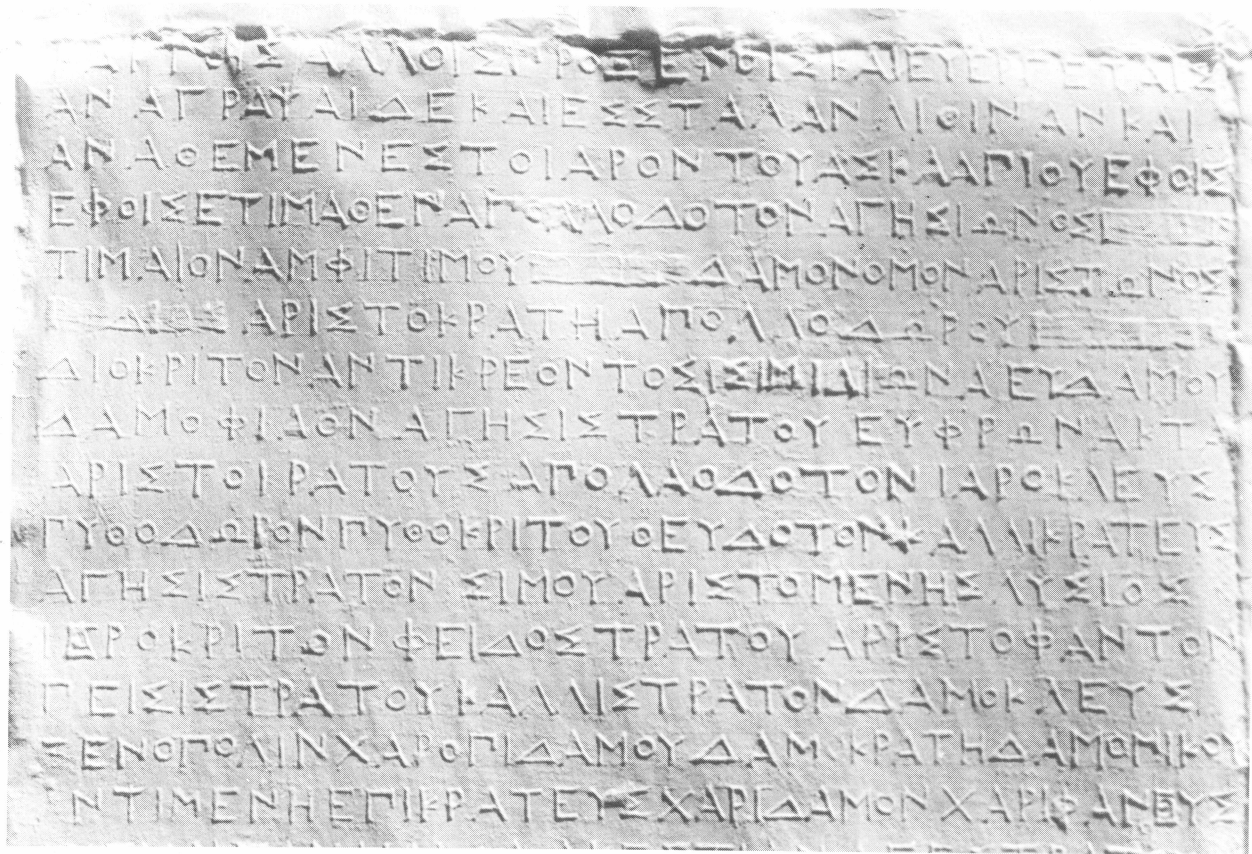 ΤΟΙΣ ΑΛΛΟΙΣ ΠΡΟΞΕΝΟΙΣ ΚΑΙ ΕΥΕΡΓΕΤΑΙΣ
ΑΝΑΓΡΑΨΑΙ ΔΕ ΚΑΙ ΕΣ ΣΤΑΛΑΝ ΛΙΘΙΝΑΝ ΚΑΙ
ΑΝΑΘΕΜΕΝ ΕΣ ΤΟ ΙΑΡΟΝ ΤΟΥ ΑΣΚΛΑΠΙΟΥ ΕΦ ΟΙΣ
ΕΦ ΟΙΣ ΕΤΙΜΑΘΕΝ ΑΠΟΛΛΟΔΟΤΟΝ ΑΓΗΣΙΩΝΟΣ
ΤΙΜΑΙΟΝ ΑΜΦΙΤΙΜΟΥ ΔΑΜΟΝΟΜΟΝ ΑΡΙΣΤΩΝΟΣ
ΑΡΙΣΤΟΚΡΑΤΗ ΑΠΟΛΛΟΔΩΡΟΥ
ΔΙΟΚΡΙΤΟΝ ΑΝΤΙΚΡΕΟΝΤΟΣ ΕΥΔΑΜΟΥ
ΔΑΜΟΦΙΛΟΝ ΑΓΗΣΙΣΤΡΑΤΟΥ ΕΥΦΡΩΝΑΚΤΑ
ΑΡΙΣΤΟΚΡΑΤΟΥΣ ΑΠΟΛΛΟΔΟΤΟΝ ΙΑΡΟΚΛΕΥΣ
ΠΥΘΟΔΩΡΟΝ ΠΥΘΟΚΡΙΤΟΥ ΘΕΥΔΟΤΟΝ ΚΑΛΛΙΚΡΑΤΕΥΣ
ΑΓΗΣΙΣΤΡΑΤΟΝ ΣΙΜΟΥ ΑΡΙΣΤΟΜΕΝΗΣ ΛΥΣΙΟΣ
ΙΕΡΟΚΡΙΤΩΝ ΦΕΙΔΟΣΤΡΑΤΟΥ ΑΡΙΣΤΟΦΑΝΤΟΝ
ΠΕΙΣΙΣΤΡΑΤΟΥ ΚΑΛΛΙΣΤΡΑΤΟΝ ΔΑΜΟΚΛΕΥΣ
ΞΕΝΟΠΟΛΙΝ ΧΑΡΟΠΙΔΑΜΟΥ ΔΑΜΟΚΡΑΤΗ ΔΑΜΟΝΙΚΟΥ
ΝΤΙΜΕΝΗ ΕΠΙΚΡΑΤΕΥΣ ΧΑΡΙΔΑΜΟΝ ΧΑΡΙΦΑΝΕΥΣ